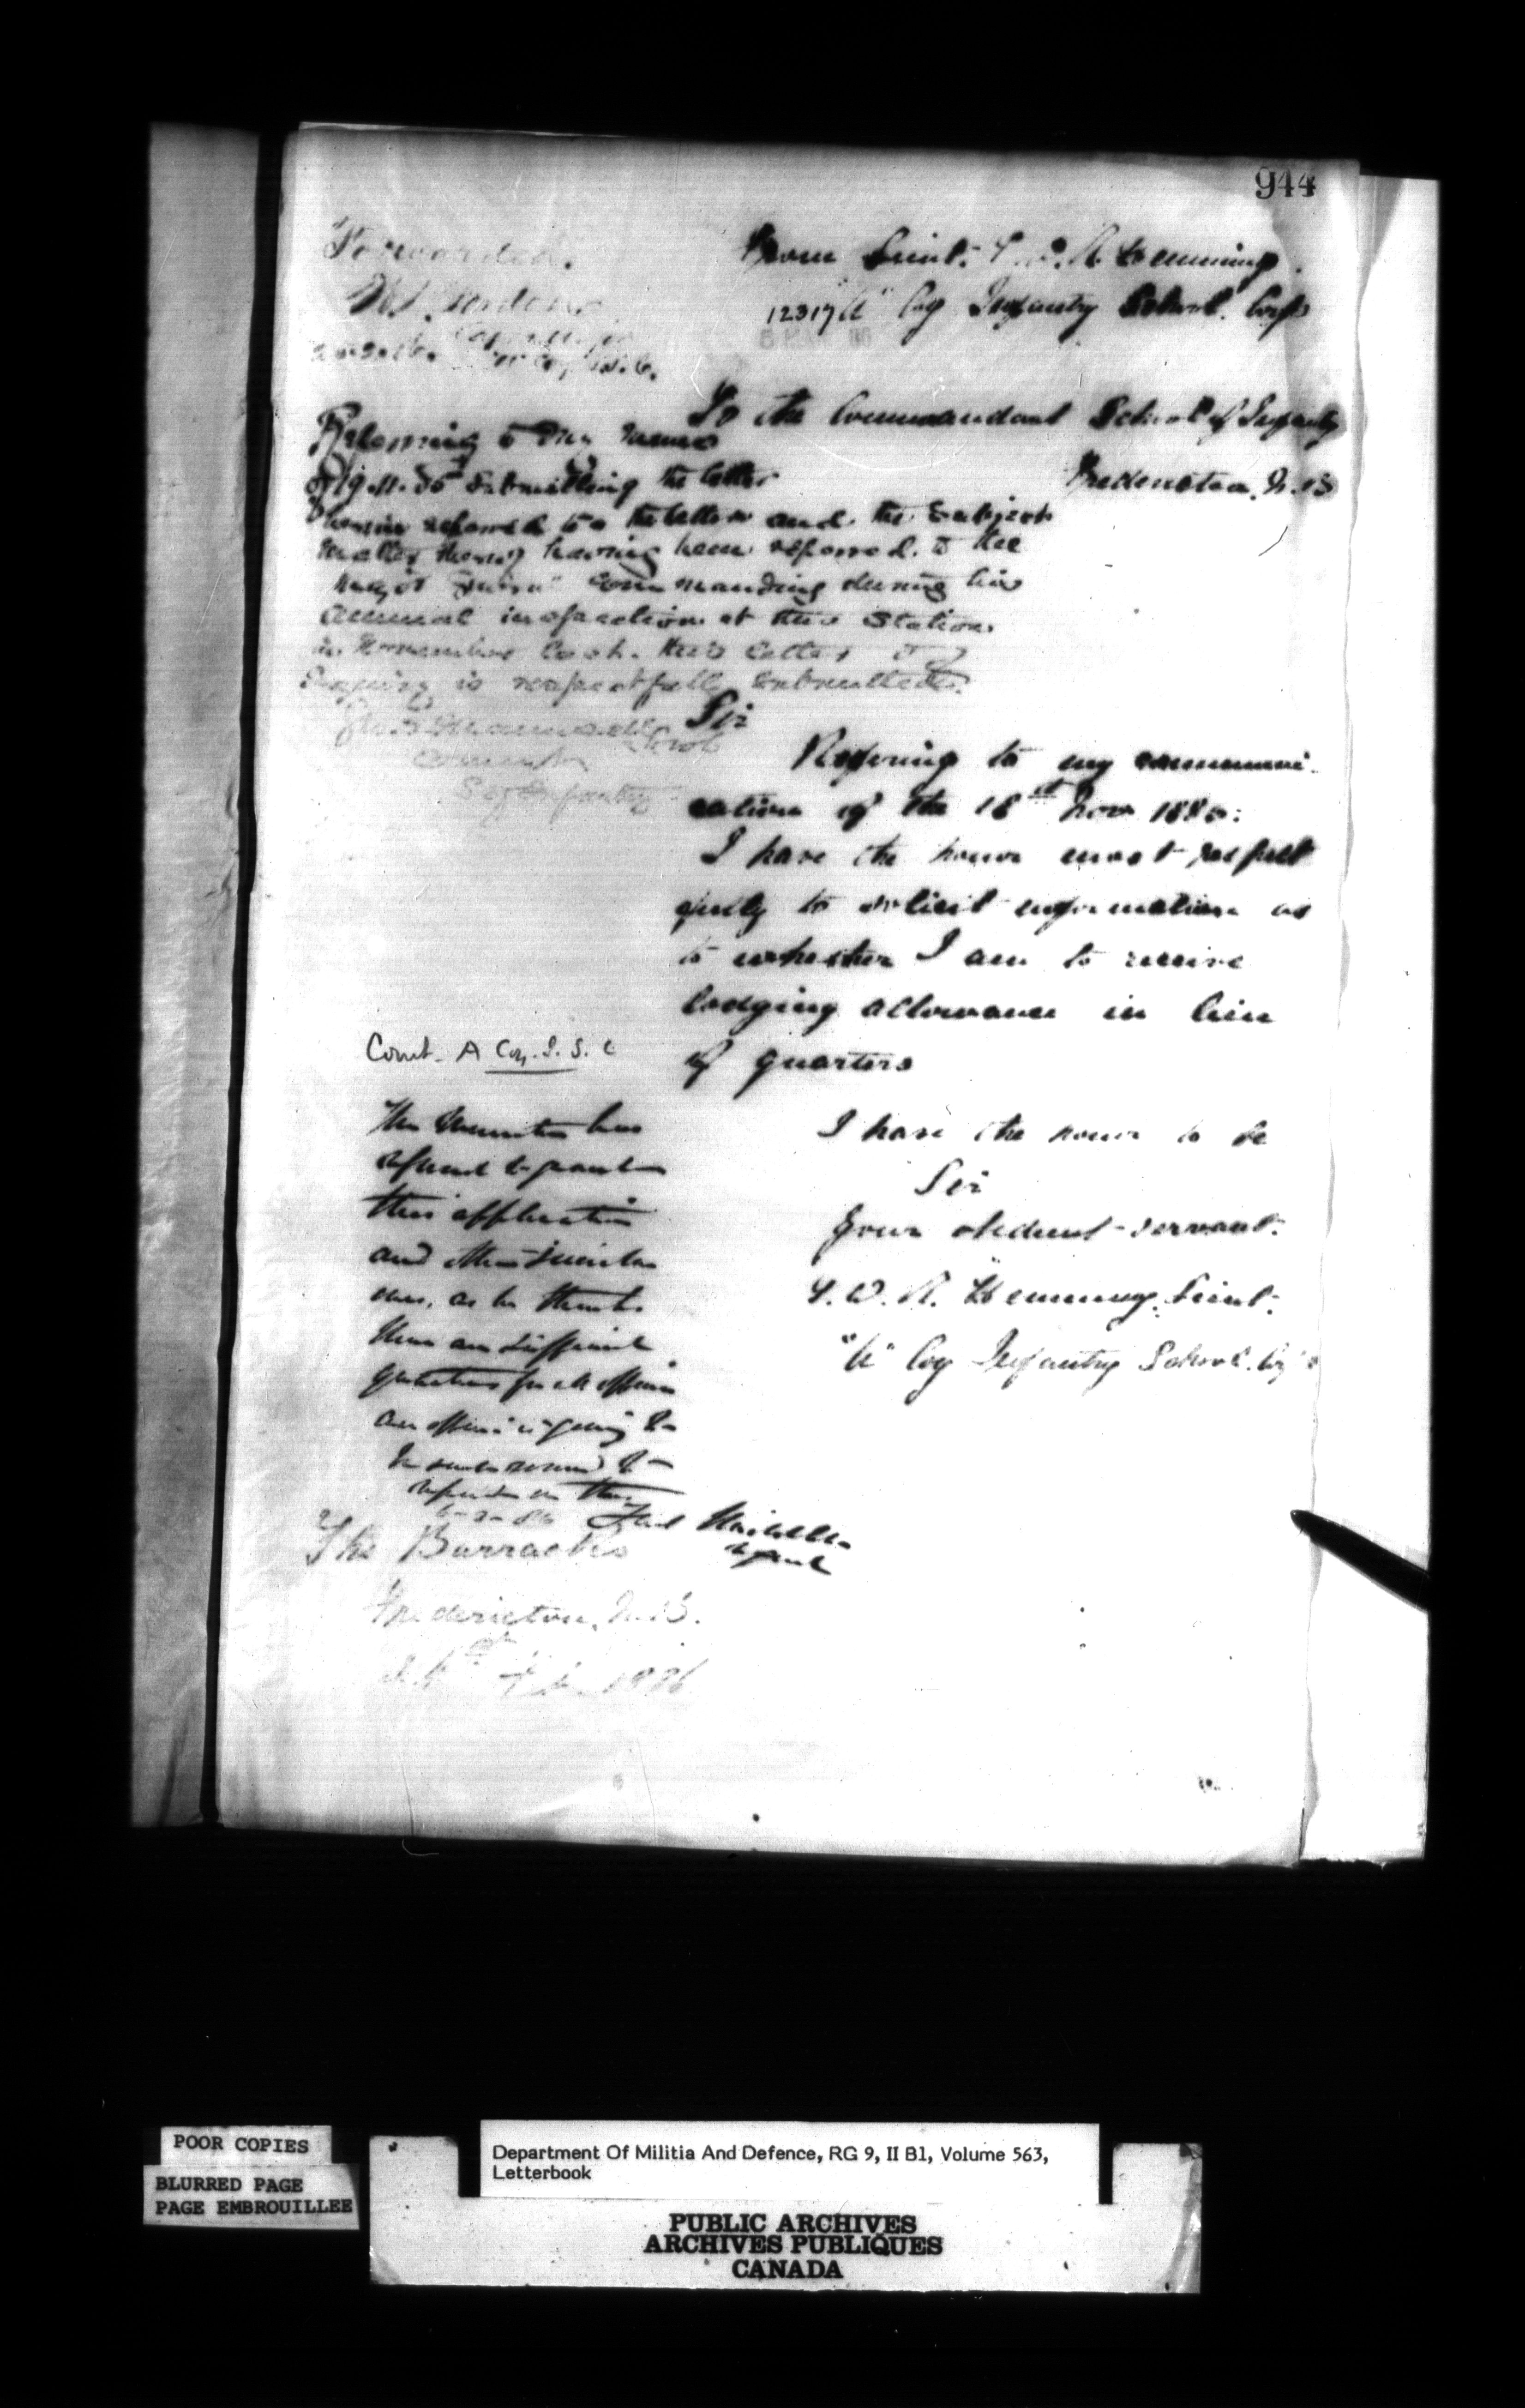 944
Forwarded.
From Lieut. T. W. R. Hemming
12317 "A" Coy Infantry School Corps
5 MAR 86
To the Commandant School of Infantry
Fredericton, N.B
Referring to my memo
submitting the letter
therein referred to & the letter and the subject
matter thereof having been referred to the
Major General Commanding during his
annual inspection at this Station
in November last. this letter of
Enquiry is respectfully submitted.
Comdt
S of Infantry
Sir
Referring to my communi-
cation of the 18th Nov 1885:
I have the honor most respect
fully to solicit information as
to whether I am to receive
lodging allowance in lieu
of quarters
I have the honor to be
Sir
Your obedient servant.
T. W. R. Hemming. Lieut.
"A" Coy Infantry School Corps
Comt. A Coy. I. S. C
The Minister has
refused to grant
this application
and other similar
ones, as he thinks
there are sufficient
quarters for all officers
an officer is going to
be sent round to
report on this
The Barracks
Fredericton, N.B.
Feb 1886
POOR COPIES
BLURRED PAGE
PAGE EMBROUILLEE
Department Of Militia And Defence, RG 9, II B1, Volume 563,
Letterbook
PUBLIC ARCHIVES
ARCHIVES PUBLIQUES
CANADA